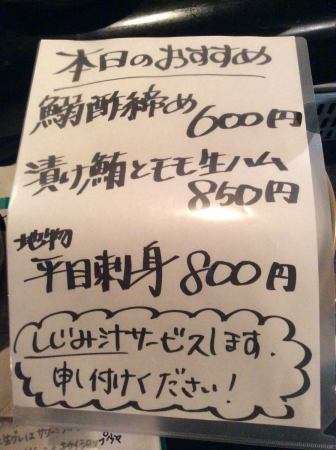 本日のおすすめ
鰯酢締め 600円
漬け鮪とモモ生ハム
850円
地物
平目刺身 800円
しじみ汁サービスします.
申し付けください!